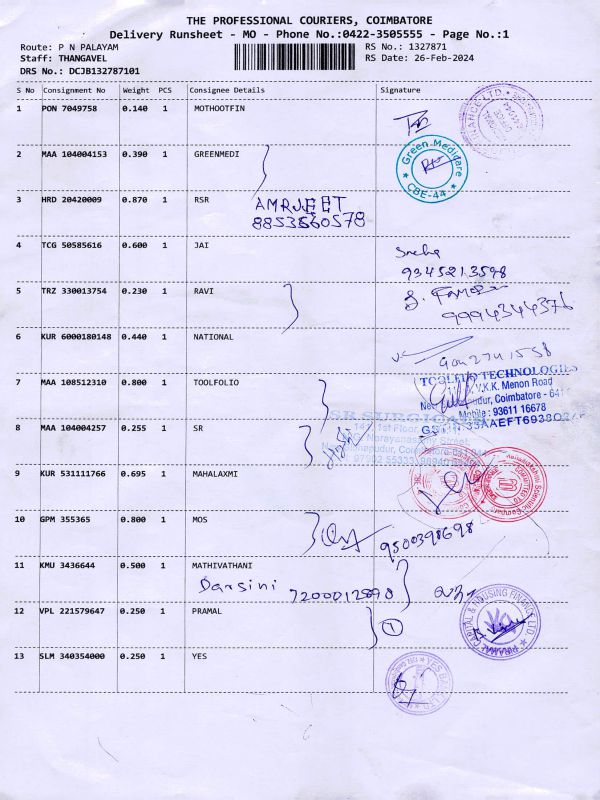 THE PROFESSIONAL COURIERS, COIMBATORE
Delivery Runsheet - MO - Phone No.:0422-3505555 - Page No.:1
Route: P N PALAYAM
RS No.: 1327871
Staff: THANGAVEL
RS Date: 26-Feb-2024
DRS No.: DCJB132787101
S No Consignment No Weight PCS Consignee Details Signature
1 PON 7049758 0.140 1 MOTHOOTFIN
2 MAA 104004153 0.390 1 GREENMEDI
Green Medicare
CBE-44
3 HRD 20420009 0.870 1 RSR
AMRJEET
8853560578
4 TCG 50585616 0.600 1 JAI
Sneha
9345213598
5 TRZ 330013754 0.230 1 RAVI
9994344376
6 KUR 6000180148 0.440 1 NATIONAL
7 MAA 108512310 0.800 1 TOOLFOLIO
TOOLFOLIO TECHNOLOGIES
V.K.K. Menon Road
Coimbatore - 641
Mobile : 93611 16678
8 MAA 104004257 0.255 1 SR
SR SURGICAL
1st Floor,
Narayanasamy Street,
9 KUR 531111766 0.695 1 MAHALAXMI
10 GPM 355365 0.800 1 MOS
9500398698
11 KMU 3436644 0.500 1 MATHIVATHANI
Darsini 7200012898
12 VPL 221579647 0.250 1 PRAMAL
1
PIRAMAL CAPITAL & HOUSING FINANCE LTD.
13 SLM 340354000 0.250 1 YES
YES BANK LTD